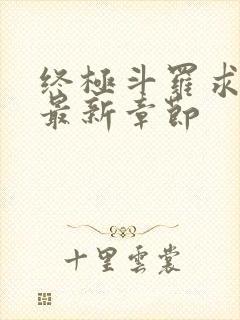 终极斗罗求
最新章節
十里雲裳